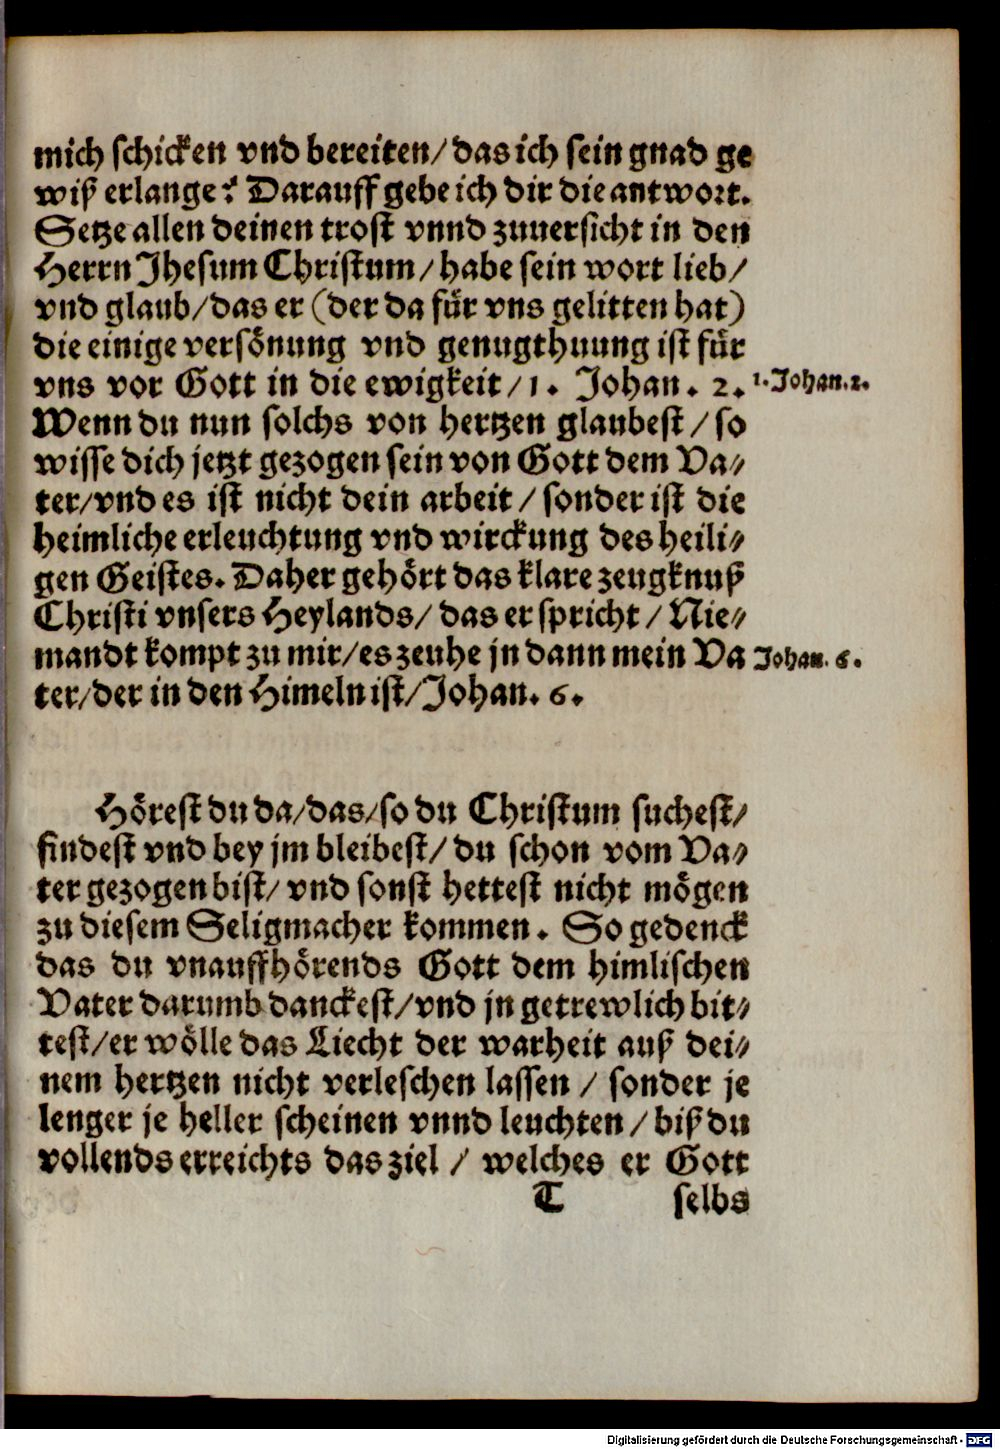 mich schicken vnd bereiten/das ich sein gnad ge
wiß erlange? Darauff gebe ich dir die antwort.
Setze allen deinen trost vnnd zuuersicht in den
Herrn Jhesum Christum/habe sein wort lieb/
vnd glaub/das er (der da für vns gelitten hat)
die einige versönung vnd genugthuung ist für
vns vor Gott in die ewigkeit/1. Johan. 2.
1. Johan. 2.
Wenn du nun solchs von hertzen glaubest/so
wisse dich jetzt gezogen sein von Gott dem Va⸗
ter/vnd es ist nicht dein arbeit/sonder ist die
heimliche erleuchtung vnd wirckung des heili⸗
gen Geistes. Daher gehört das klare zeugknuß
Christi vnsers Heylands/das er spricht/Nie⸗
mandt kompt zu mir/es zeuhe jn dann mein Va
Johan. 6.
ter/der in den Himeln ist/Johan. 6.
Hörest du da/das/so du Christum suchest/
findest vnd bey jm bleibest/du schon vom Va⸗
ter gezogen bist/vnd sonst hettest nicht mögen
zu diesem Seligmacher kommen. So gedenck
das du vnauffhörends Gott dem himlischen
Vater darumb danckest/vnd jn getrewlich bit⸗
test/er wölle das Liecht der warheit auß dei⸗
nem hertzen nicht verleschen lassen/sonder je
lenger je heller scheinen vnnd leuchten/biß du
vollends erreichts das ziel/welches er Gott
T selbs
Digitalisierung gefördert durch die Deutsche Forschungsgemeinschaft - DFG